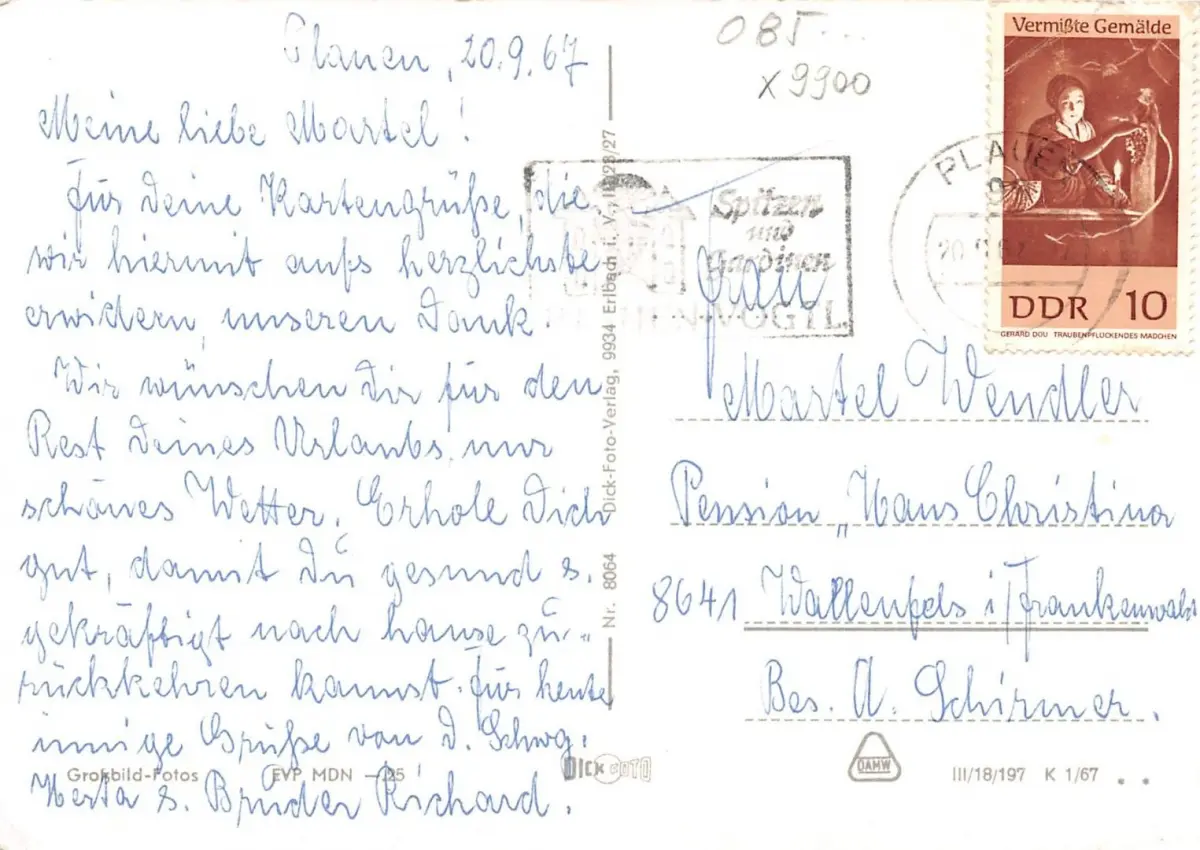 Plauen, 20.9.67
Meine liebe Martel!
Für Deine Kartengrüße, die
wir hiermit aufs herzlichste
erwidern, unseren Dank.
Wir wünschen Dir für den
Rest Deines Urlaubs nur
schönes Wetter. Erhole Dich
gut, damit Du gesund u.
gekräftigt nach hause zu-
rückkehren kannst. Für heute
innige Grüße von D. Schwg.
Herta u. Bruder Richard.
Großbild-Fotos EVP MDN —,25
DICK FOTO
Nr. 8064 Dick-Foto-Verlag, 9934 Erlbach i. V.
085...
x 9900
Spitzen
und
Gardinen
VOGTL
PLAUEN
Vermißte Gemälde
DDR 10
GERARD DOU TRAUBENPFLÜCKENDES MÄDCHEN
Frau
Martel Wendler
Pension „Haus Christina
8641 Wallenfels i/Frankenwald
Bes. A. Schirmer.
DAMW
III/18/197 K 1/67